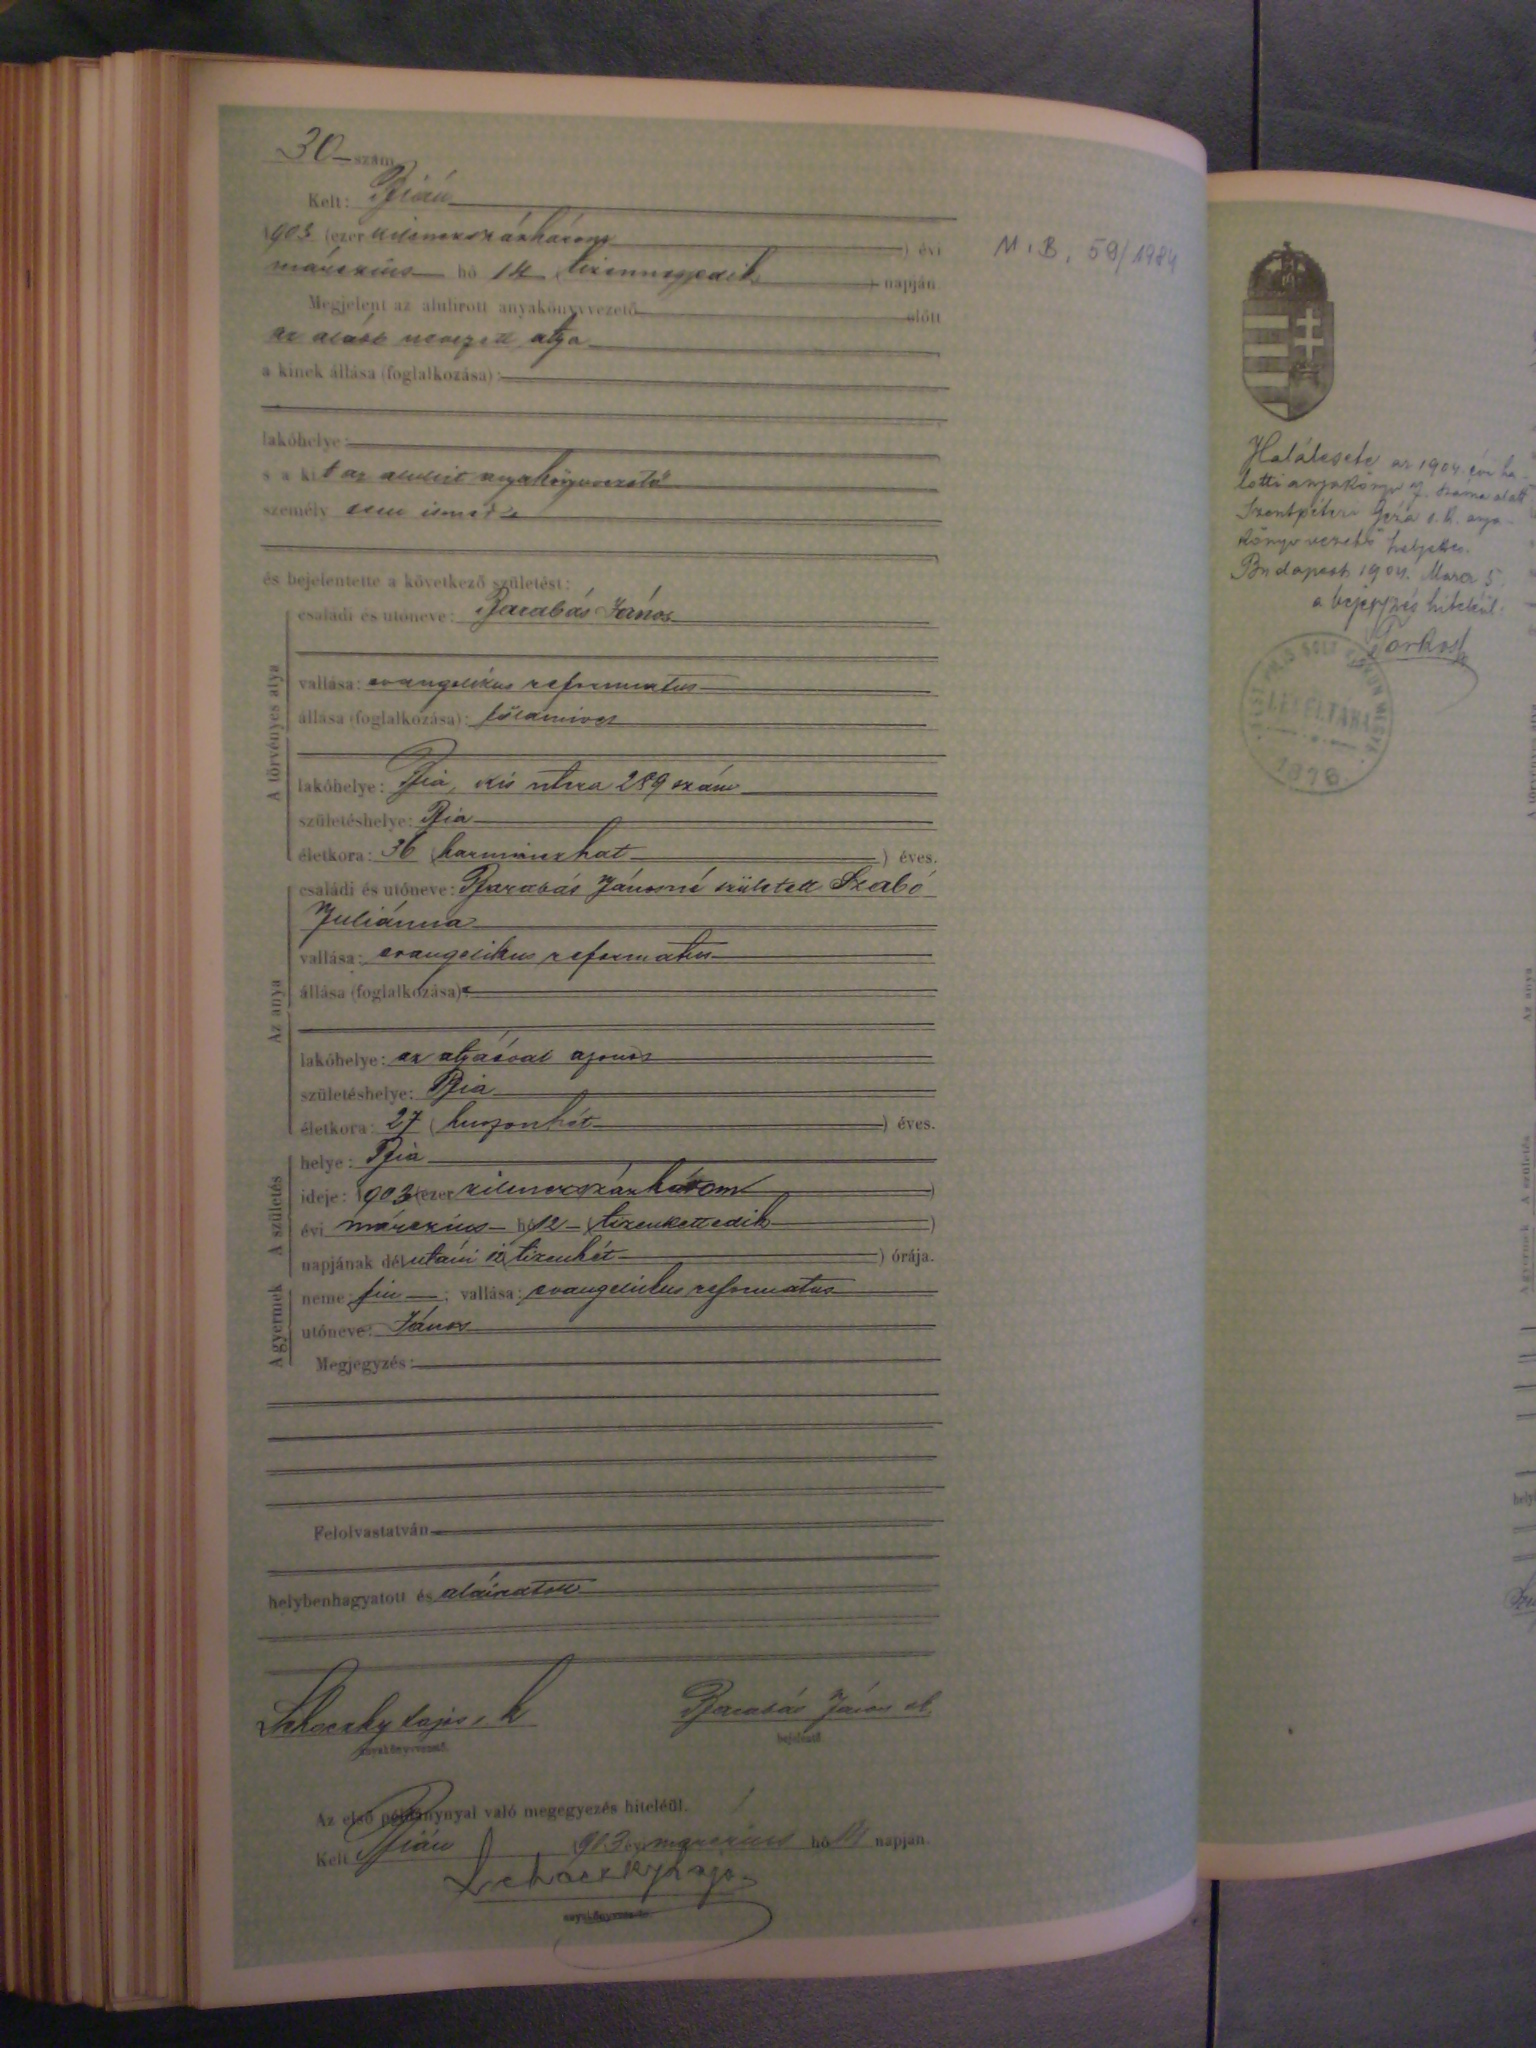 30 szám
Kelt: Bián
1903 (ezer kilencszázhárom) évi
márczius hó 14 (tizennegyedik) napján
Megjelent az alulirott anyakönyvvezető előtt
az alább nevezett atya
a kinek állása (foglalkozása):
lakóhelye:
s a kit az alulirt anyakönyvvezető
személyesen ismer
és bejelentette a következő születést:
A törvényes atya
családi és utóneve: Barabás János
vallása: evangelikus reformatus
állása (foglalkozása): földmives
lakóhelye: Bia, kis utcza 289 szám
születéshelye: Bia
életkora: 36 (harminczhat) éves.
Az anya
családi és utóneve: Barabás Jánosné született Szabó
Juliánna
vallása: evangelikus reformatus
állása (foglalkozása):
lakóhelye: az atyáéval azonos
születéshelye: Bia
életkora: 27 (huszonhét) éves.
A születés
helye: Bia
ideje: 1903 (ezer kilenczszázhárom)
évi márczius hó 12 (tizenkettedik)
napjának délutáni tizenhét) órája.
A gyermek
neme: fiu ; vallása: evangelikus reformatus
utóneve: János
Megjegyzés:
Felolvastatván
helybenhagyatott és aláiratott
Lehoczky Lajos s. k
Barabás János
anyakönyvvezető
bejelentő
Az első példánynyal való megegyezés hiteléül.
Kelt Bián 1903 évi márczius hó 14 napján.
Lehoczky Lajos
anyakönyvvezető
M. B. 59/1984
Halálesete az 1904. évi ha-
lotti anyakönyv 7. száma alatt
Szentpéteri Géza s. k. anya-
könyvvezető helyettes.
Budapest 1904. Marcz 5
a bejegyzés hiteléül:
PEST PILIS SOLT KISKUN MEGYE
LEVÉLTÁRA
1876
Az anya
A születés
A gyermek